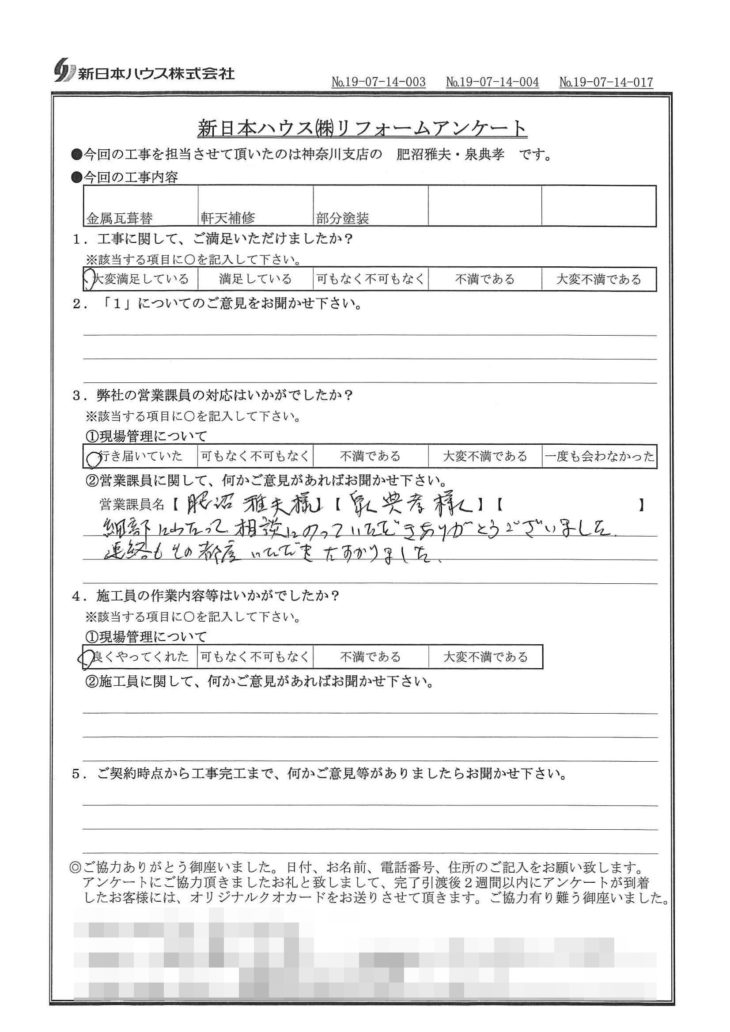 新日本ハウス株式会社
№19-07-14-003 №19-07-14-004 №19-07-14-017
新日本ハウス㈱リフォームアンケート
●今回の工事を担当させて頂いたのは神奈川支店の 肥沼雅夫・泉典孝 です。
●今回の工事内容
金属瓦葺替 軒天補修 部分塗装
1．工事に関して、ご満足いただけましたか？
※該当する項目に〇を記入して下さい。
大変満足している 満足している 可もなく不可もなく 不満である 大変不満である
2．「1」についてのご意見をお聞かせ下さい。
3．弊社の営業課員の対応はいかがでしたか？
※該当する項目に〇を記入して下さい。
①現場管理について
行き届いていた 可もなく不可もなく 不満である 大変不満である 一度も会わなかった
②営業課員に関して、何かご意見があればお聞かせ下さい。
営業課員名【肥沼 雅夫様】【泉 典孝様】【 】
細部にわたって相談にのっていただきありがとうございました。
連絡もその都度いただきたすかりました。
4．施工員の作業内容等はいかがでしたか？
※該当する項目に〇を記入して下さい。
①現場管理について
良くやってくれた 可もなく不可もなく 不満である 大変不満である
②施工員に関して、何かご意見があればお聞かせ下さい。
5．ご契約時点から工事完工まで、何かご意見等がありましたらお聞かせ下さい。
◎ご協力ありがとう御座いました。日付、お名前、電話番号、住所のご記入をお願い致します。
アンケートにご協力頂きましたお礼と致しまして、完了引渡後2週間以内にアンケートが到着
したお客様には、オリジナルクオカードをお送りさせて頂きます。ご協力有り難う御座いました。